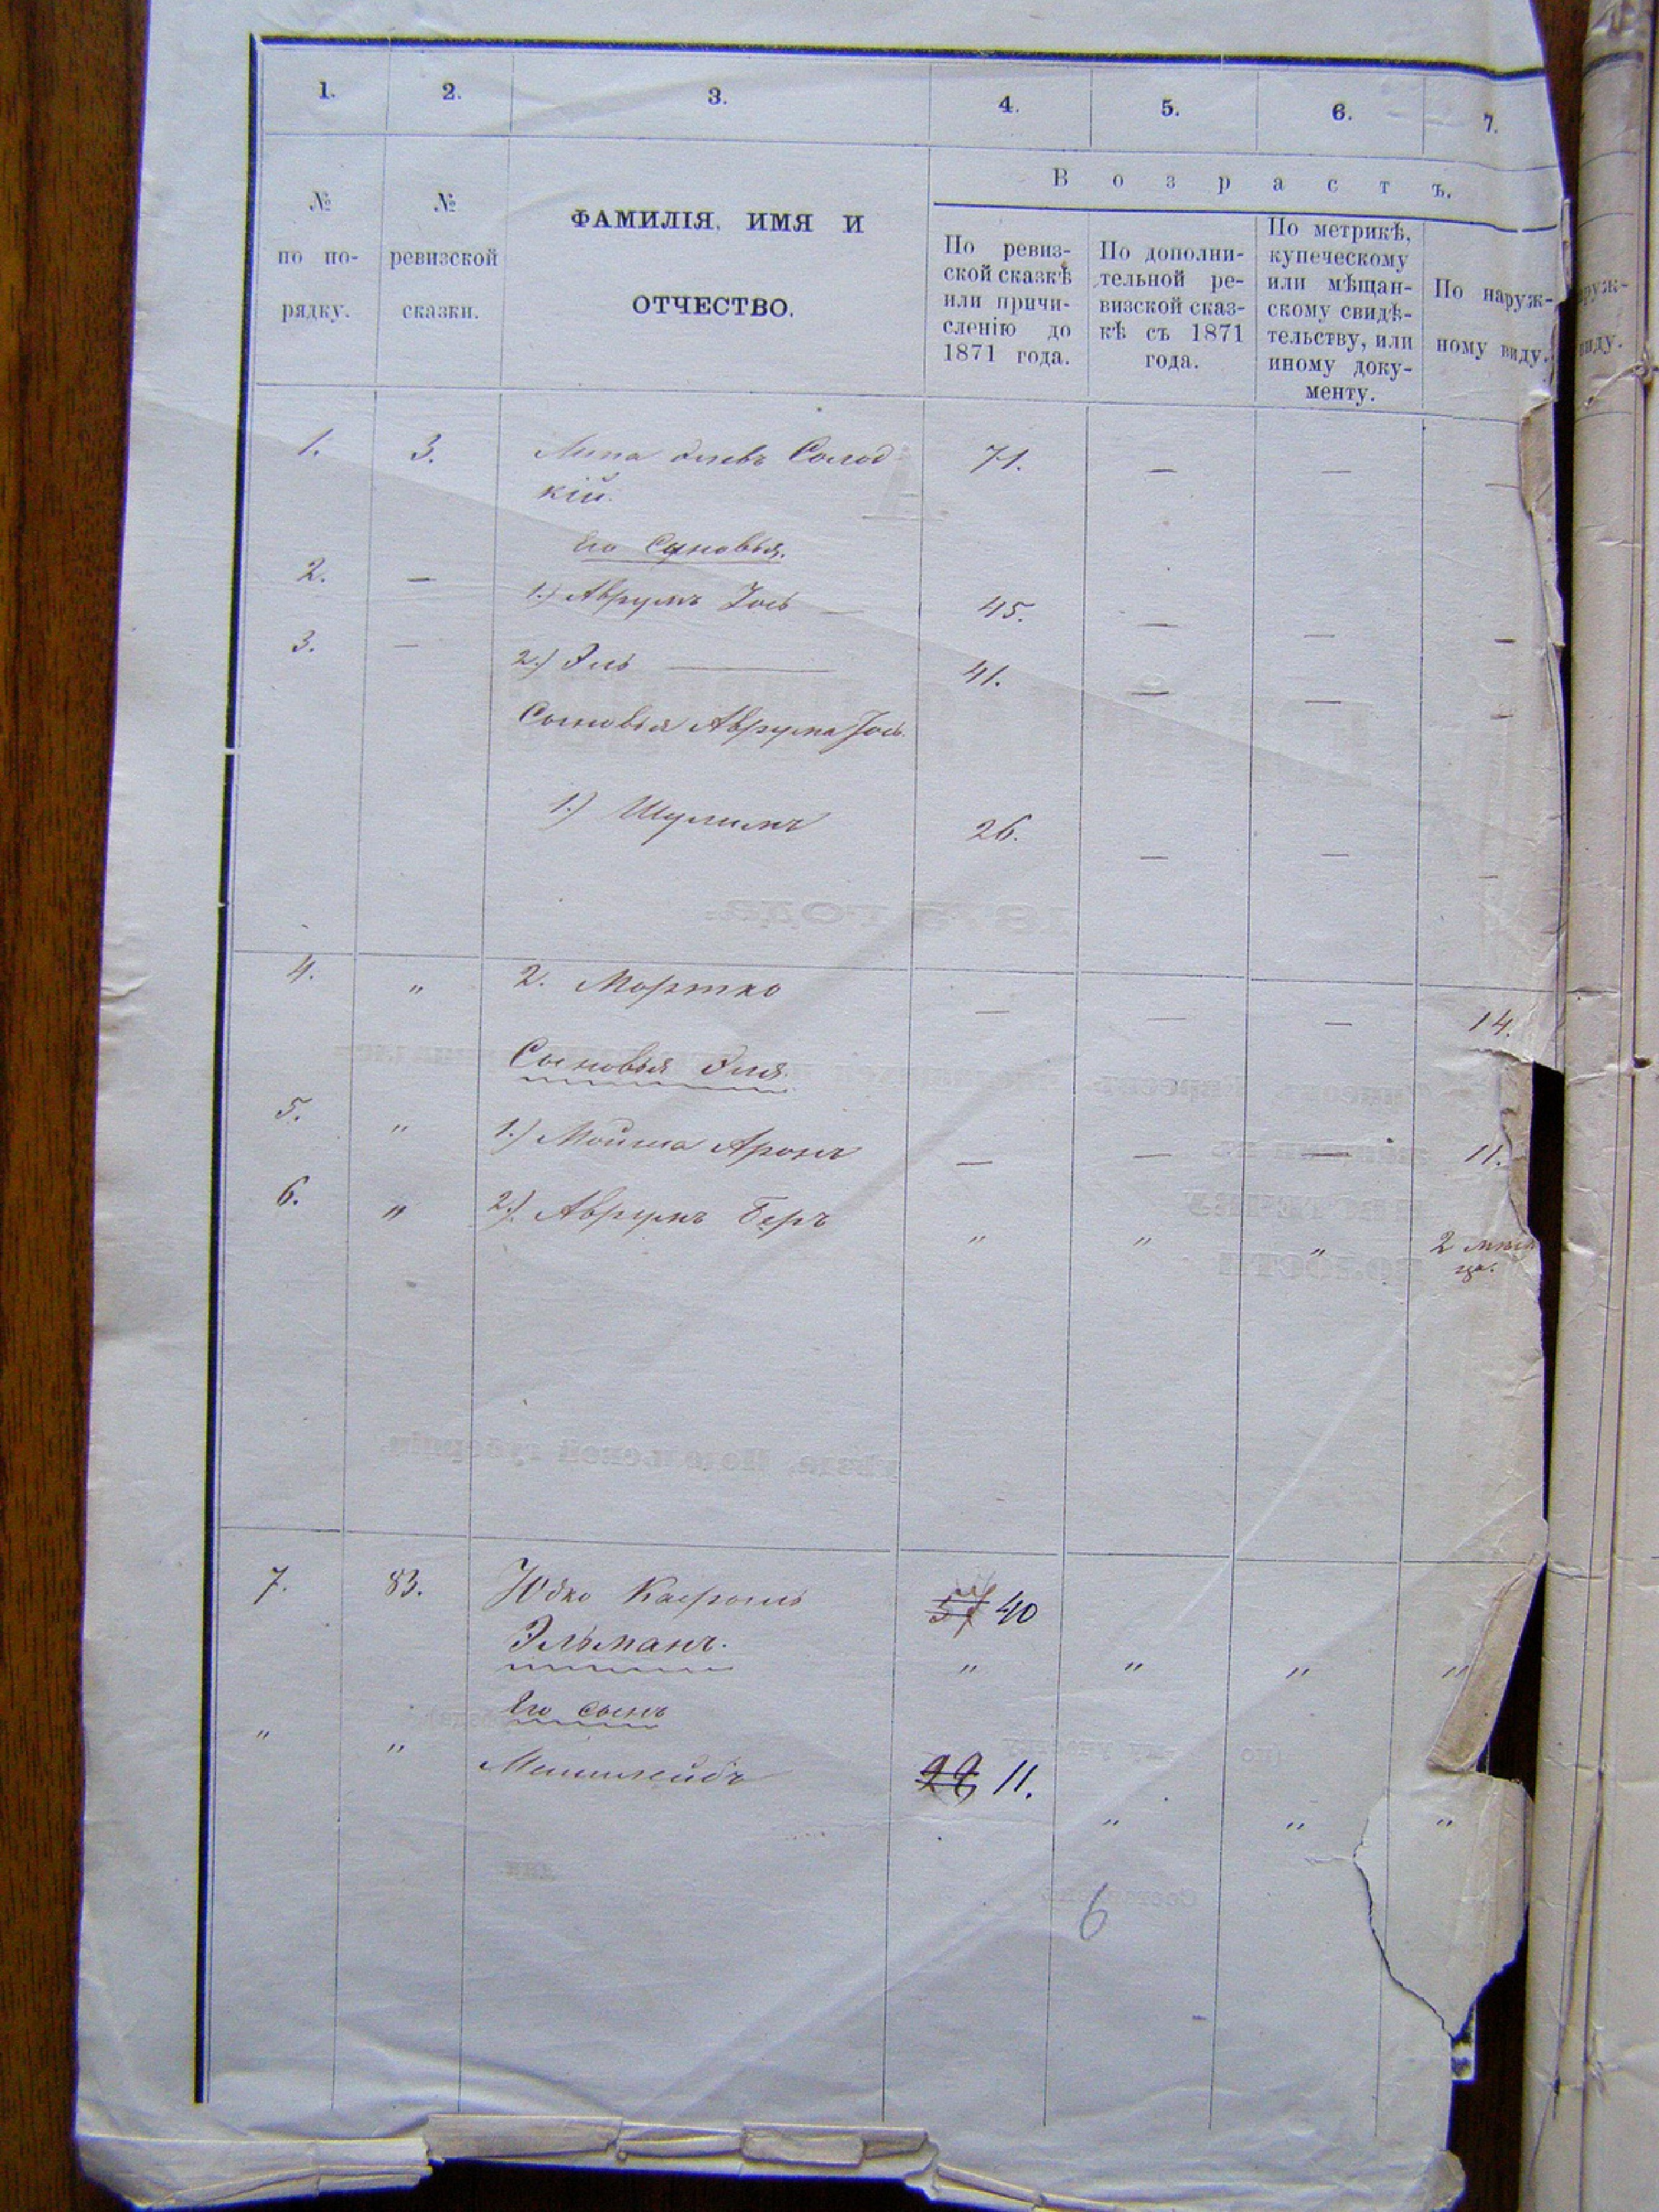 1. 2. 3. 4. 5. 6. 7.
№ по по-рядку.
№ ревизской сказки.
ФАМИЛІЯ, ИМЯ И
ОТЧЕСТВО.
Возрастъ.
По ревиз-
ской сказкѣ
или причи-
сленію до
1871 года.
По дополни-
тельной ре-
визской сказ-
кѣ съ 1871
года.
По метрикѣ,
купеческому
или мѣщан-
скому свидѣ-
тельству, или
иному доку-
менту.
По наруж-
ному виду.
1. 3. Липа Элевъ Солод 71. — — —
кій.
Его Сыновья.
2. — 1.) Аврумъ Іось — 45. — — —
3. — 2.) Эль — 41. — — —
Сыновья Аврума Іось.
1.) Шулимъ 26. — — —
4. " 2. Мортко — — — 14.
Сыновья Эля.
5. " 1.) Мойша Аронъ — — — 11.
6. " 2.) Аврумъ Беръ " " " 2 мѣся
ца.
7. 83. Юдко 40
Эльманъ. " " " "
Его сынъ
" " 11. " " "
6